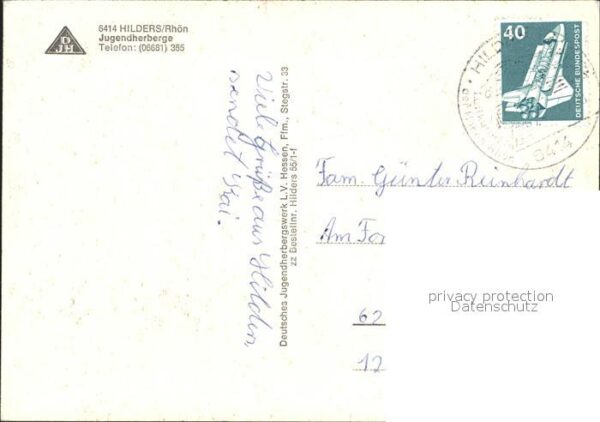 DJH
6414 HILDERS/Rhön
Jugendherberge
Telefon: (06681) 365
Viele Grüße aus Hilders,
sendet Kai.
Deutsches Jugendherbergswerk L.V. Hessen, Ffm., Stegstr. 33
zz Bestellnr. Hilders 55/1-f
40
DEUTSCHE BUNDESPOST
HILD
6414
Fam. Günter Reinhardt
Am For
62
12
privacy protection
Datenschutz